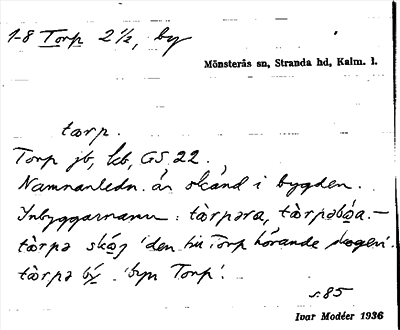 1-8 Torp 2 1/2, by
Mönsterås sn, Stranda hd, Kalm. l.
tɑrp.
Torp jb, kb, GS 22.
Namnanledn. är okänd i bygden.
Inbyggarnamn: tàrpəra, tàrpəbo̱a. –
tàrpə sko̱g 'den till Torp hörande skogen'.
tàrpə by̱ 'byn Torp'.
s. 85
Ivar Modéer 1936